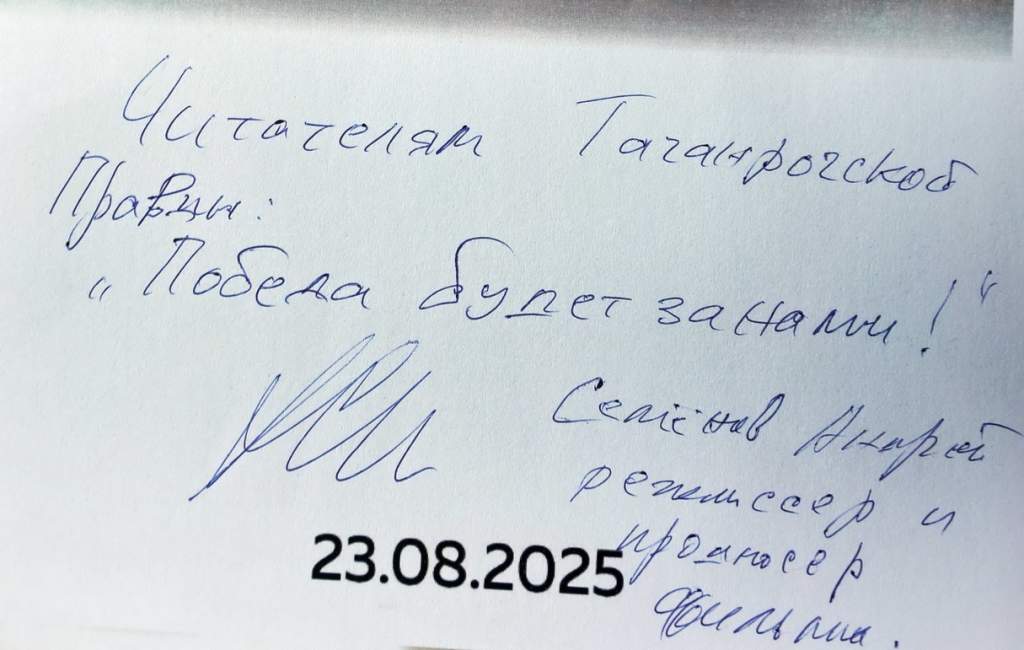 Читателям Таганрогской
Правды:
„Победа будет за нами!“
Семёнов Андрей
режиссер и
продюсер
фильма.
23.08.2025